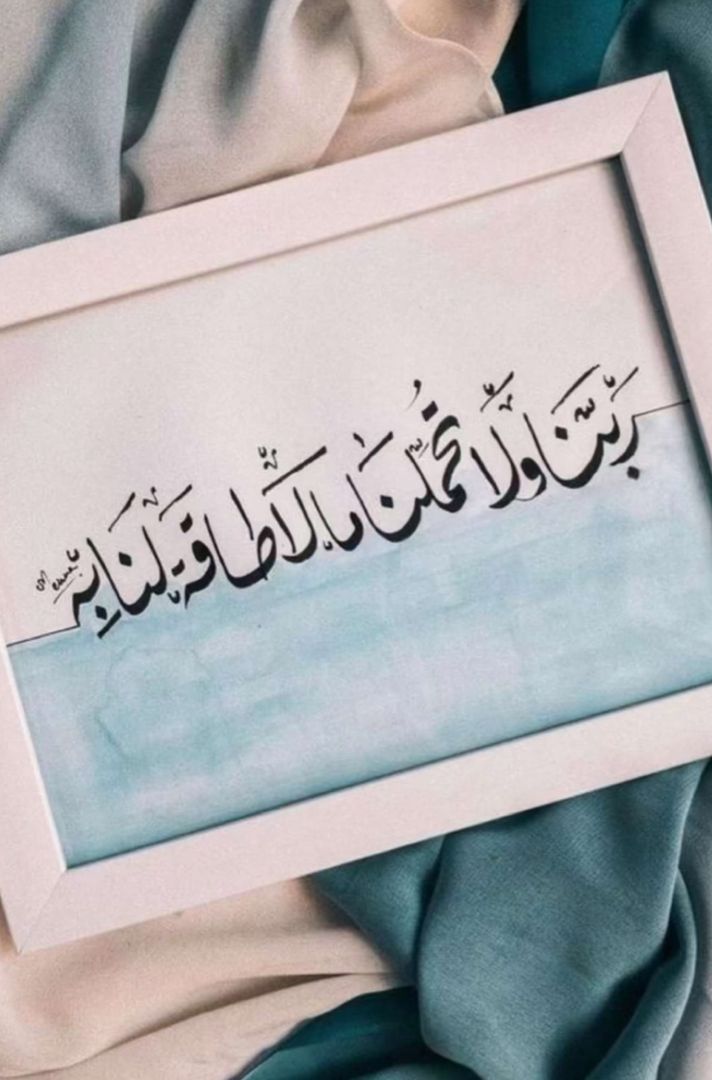 رَبَّنَا وَلَا تُحَمِّلْنَا مَا لَا طَاقَةَ لَنَا بِهِ